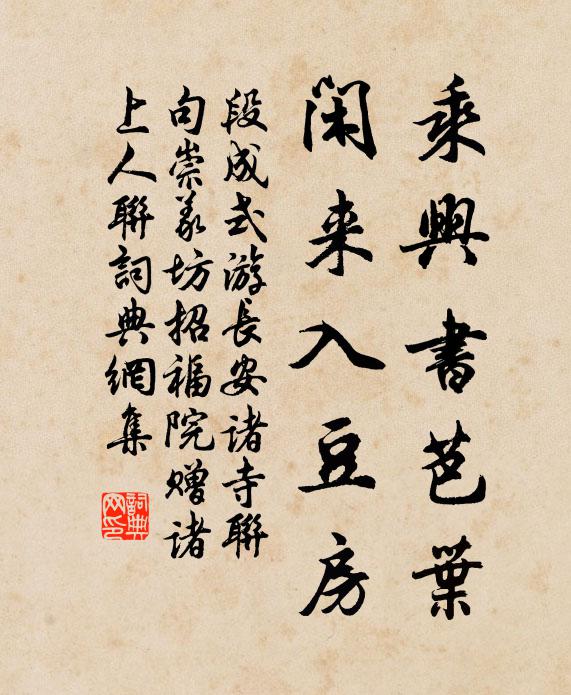 乘興書芭葉
閑来入豆房
段成式游長安諸寺聯
句崇義坊招福院赠諸
上人聯詞典網集
詞典
网印